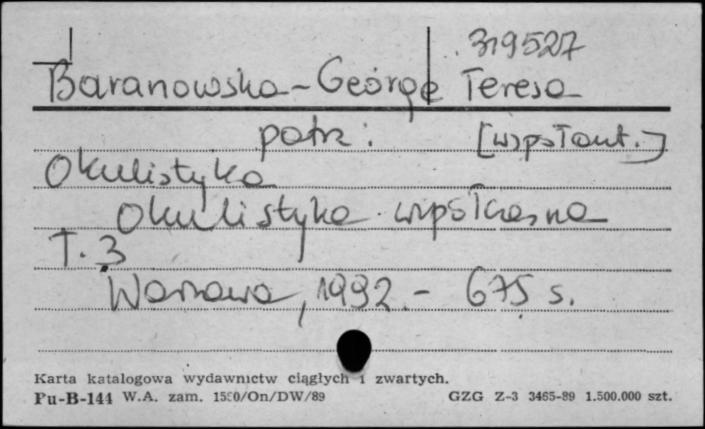 319527
Baranowska-George Teresa
patrz: [współaut.]
Okulistyka
Okulistyka współczesna
T. 3
Warszawa, 1992.- 675 s.
Karta katalogowa wydawnictw ciągłych i zwartych.
Pu-B-144 W.A. zam. 1550/On/DW/89 GZG Z-3 3465-89 1.500.000 szt.